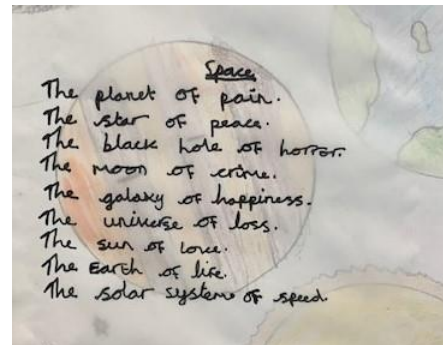 Space
The planet of pain.
The star of peace.
The black hole of horror.
The moon of crime.
The galaxy of happiness.
The universe of loss.
The sun of love.
The Earth of life.
The solar system of speed.